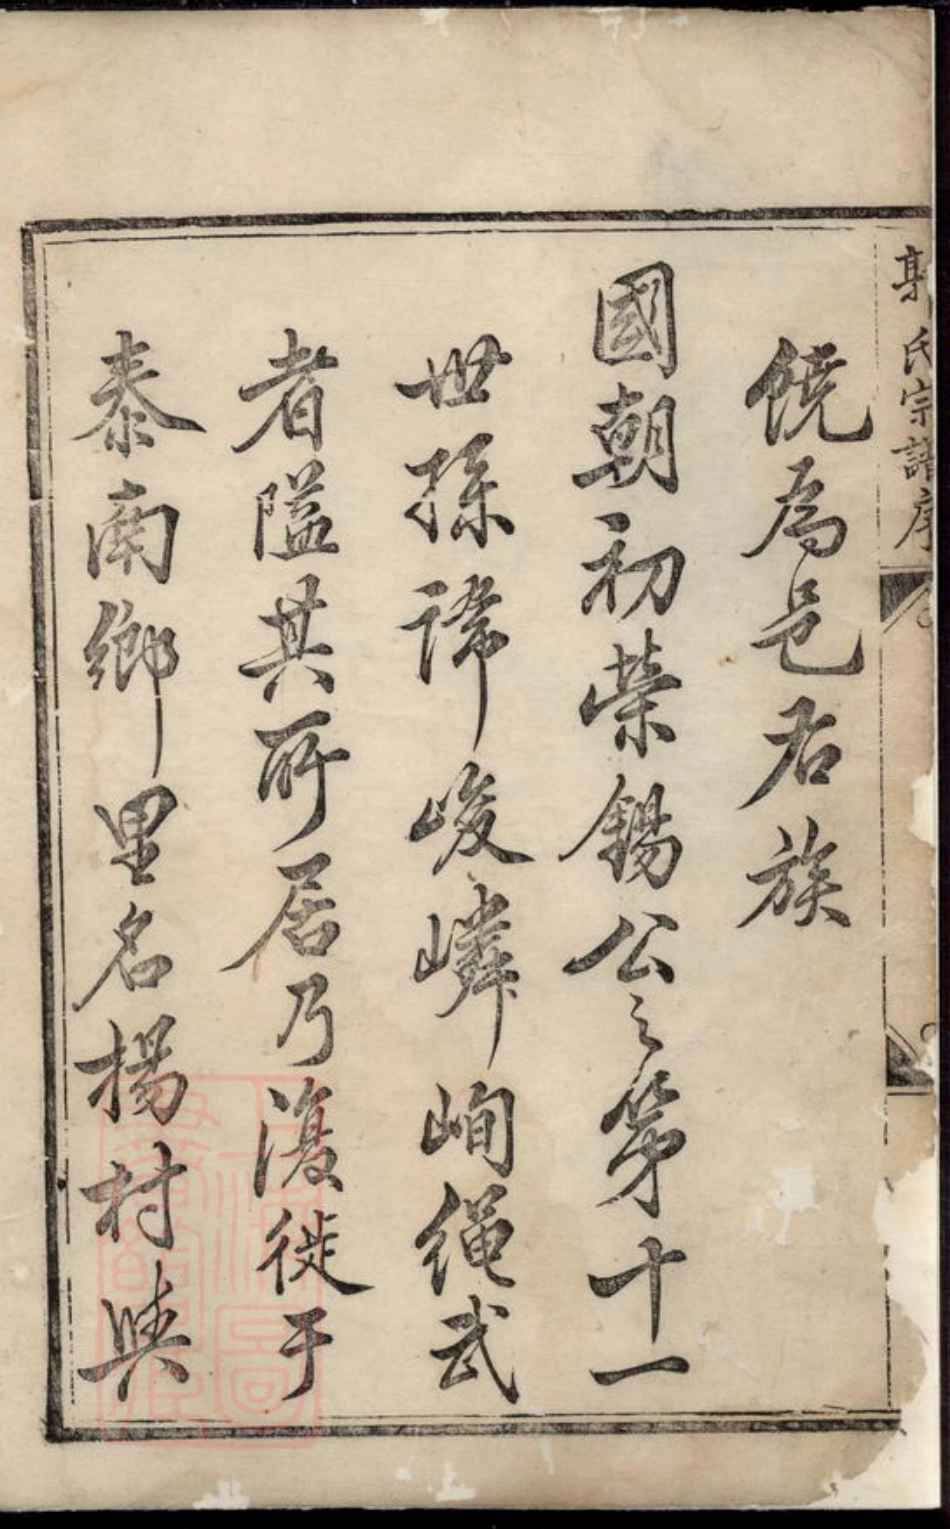 郭氏宗譜序
饒為邑右族
國朝初榮錫公之第十一
世孫諱峻嶙峋繩武
者隘其所居乃復徙于
泰南鄉里名楊村與